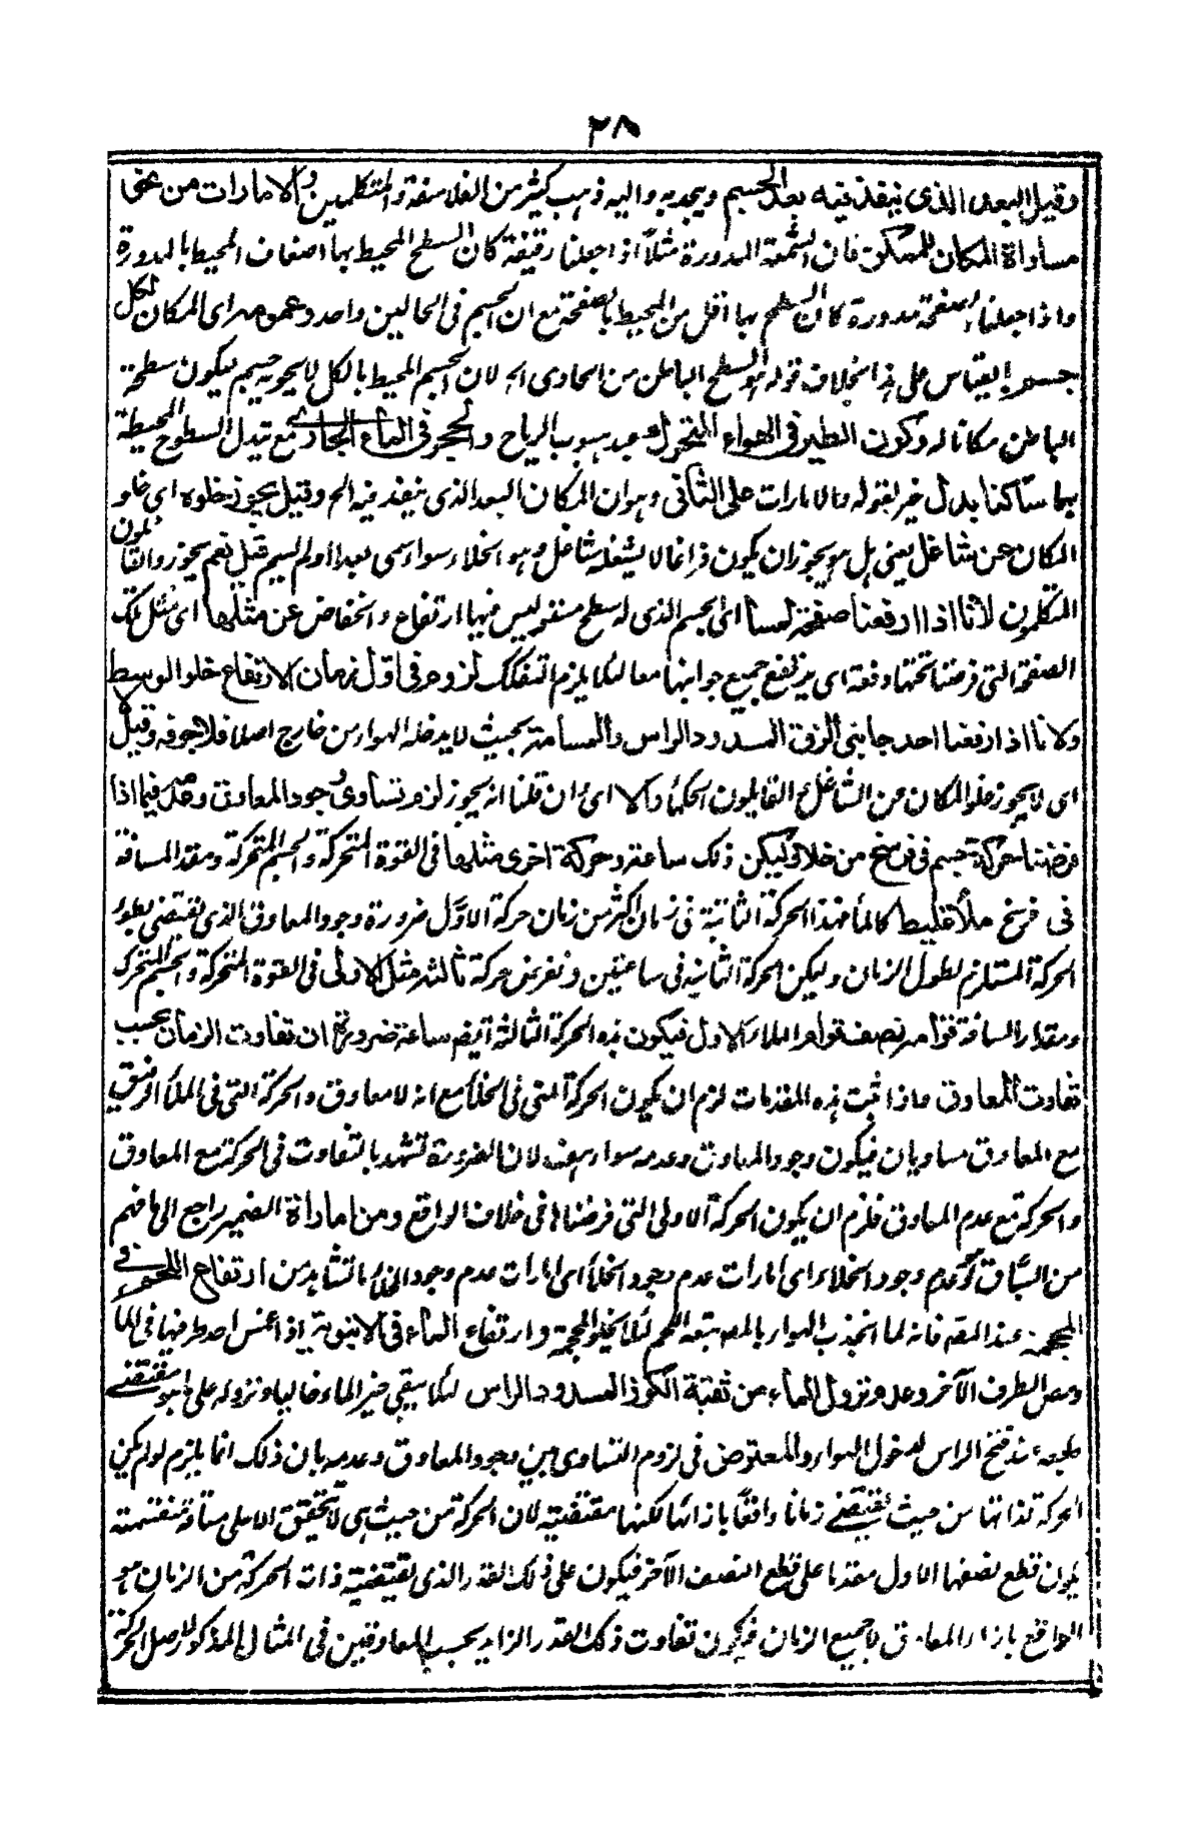 ٢٨
وقيل البعد الذى ينفذ فيه بعد الجسم ويحد به واليه ذهب كثير من الفلاسفة والمتكلمين والامارات من
مساواة المكان للمتمكن فان الشمعة المدورة مثلا اذا جعلنا رقيقة كان السطح المحيط بها اضعاف المحيط بالمدورة
واذا جعلنا صفحة مدورة كان السطح بها اقل من المحيط بالصفحة مع ان الجسم فى الحالين واحد وعمومه اى المكان لكل
جسم بالقياس على هذا بخلاف قوله هو السطح الباطن من الحاوى اه لان الجسم المحيط بالكل لا يحويه جسم ليكون سطحه
الباطن مكانا له وكون الطير فى الهواء المتحرك عند هبوب الرياح والحجر فى الماء الجارى مع تبدل السطوح المحيطة
بهما ساكنا بدل خبر لقوله والامارات على الثانى وهو ان المكان البعد الذى ينفذ فيه الجسم وقيل يجوز خلوه اى خلو
المكان عن شاغل يعنى هل يجوز ان يكون فراغا لا يشغله شاغل وهو الخلاء سواء سمى بعدا او لم يسم قيل نعم يجوز والقائلون
المتكلمون لانا اذا رفعنا صفحة لمساء اى الجسم الذى له سطح مستو ليس فيها ارتفاع وانخفاض عن مثلها اى مثل تلك
الصفحة التى فرضنا تحتها دفعة اى يرتفع جميع جوانبها معا لئلا يلزم التفكك لزم فى اول زمان الارتفاع خلو الوسط
ولانا اذا رفعنا احد جانبى الزق المسدود الراس والمسامة بحيث لا يدخله الهواء من خارج اصلا خلا جوفه وقيل
اى لا يجوز خلو المكان عن الشاغل القايلون الحكماء والا اى ان قلنا انه يجوز لزم تساوى وجود المعاوق وعدمه فيما اذا
فرضنا حركة جسم فى فرسخ من خلاء وليكن ذلك ساعة وحركة اخرى مثلها فى القوة المتحركة والجسم المتحركة ومقدار المسافة
فى فرسخ ملأ غليظ كالماء فهذا الحركة الثانية فى زمان اكثر من زمان حركة الاول ضرورة وجود المعاوق الذى يقتضى بطوء
الحركة المستلزم لطول الزمان وليكن الحركة الثانية فى ساعتين ونفرض حركة ثالثة مثل الاولى فى القوة المتحركة والجسم المتحرك
ومقدار المسافة قوامه نصف قوام الملاء الاول فيكون هذه الحركة الثالثة ايضا ساعة ضرورة ان تفاوت الزمان بحسب
تفاوت المعاوق فاذا ثبت هذه المقدمات لزم ان يكون الحركة التى فى الخلأ مع انه لا معاوق والحركة التى فى الملأ الرقيق
مع المعاوق مساويان فيكون وجود المعاوق وعدمه سواء لان الضرورة تشهد بالتفاوت فى الحركة مع المعاوق
والحركة مع عدم المعاوق فلزم ان يكون الحركة الاولى التى فرضناها فى خلاف الواقع ومن اماراة الضمير راجع الى ما فهم
من السياق وعدم وجود الخلاء اى امارات عدم وجود الخلأ اى امارات عدم وجود الخلاء ما تشاهد من ارتفاع اللحم فى
المحجمة عند المص فانه لما انجذب الهواء بالمص تبعه اللحم لئلا يخلو المحجمة وارتفاع الماء فى الانبوبة اذا غمس احد طرفيها فى الماء
ومص الطرف الآخر وعدم نزول الماء من ثقبة الكوز المسدود الراس لئلا يبقى حيز الماء خاليا ونزوله على ما هو مقتضى
طبعه عند فتح الراس لدخول الهواء والمعترض فى لزوم التساوى بين وجود المعاوق وعدمه بان ذلك انما يلزم لو لم يكن
الحركة لذاتها من حيث يقتضى زمانا واقعا بازائها لكنها مقتضية لان الحركة من حيث هى لا تتحقق الا على مسافة منقسمة
يكون قطع نصفها الاول مقدما على قطع النصف الآخر فيكون على ذلك القدر الذى يقتضيه ذات الحركة من الزمان هو
الواقع بازاء المعاوق لا جميع الزمان فيكون تفاوت ذلك القدر الزايد بحسب المعاوقين فى المثال المذكور لاصل الحركة